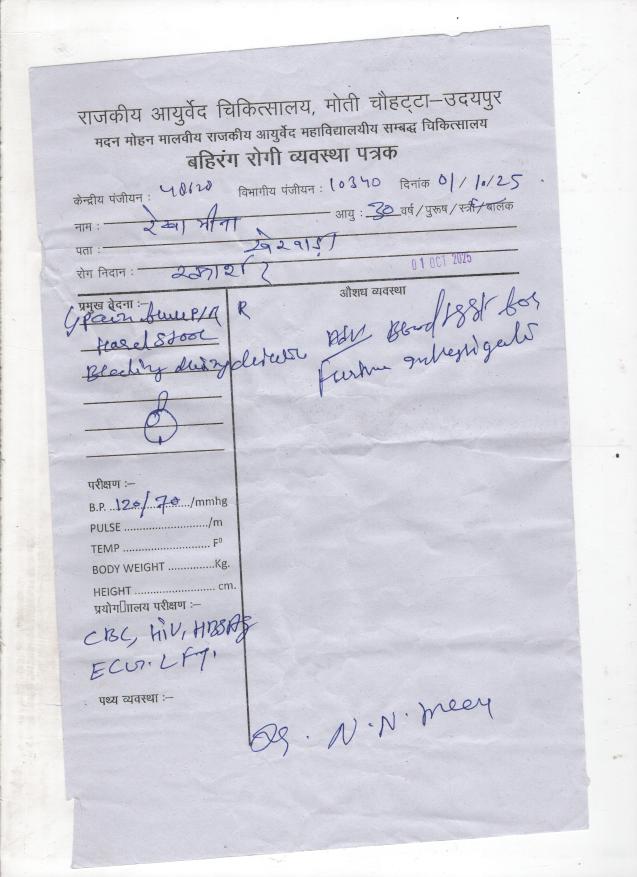 राजकीय आयुर्वेद चिकित्सालय, मोती चौहट्टा–उदयपुर
मदन मोहन मालवीय राजकीय आयुर्वेद महाविद्यालयीय सम्बद्ध चिकित्सालय
बहिरंग रोगी व्यवस्था पत्रक
केन्द्रीय पंजीयन : विभागीय पंजीयन : 10340 दिनांक 01/10/25
नाम : रेखा मीना आयु : 30 वर्ष/पुरूष/स्त्री/बालक
पता : खेरवाड़ा
रोग निदान : रक्तार्श
01 OCT 2025
प्रमुख वेदना :–
औशध व्यवस्था
Pain P/R R
Hard Stool
Bleeding during
Adv Blood test for
Further
परीक्षण :–
B.P. 120/70 /mmhg
PULSE ......................./m
TEMP ........................ F⁰
BODY WEIGHT .............Kg.
HEIGHT ..................... cm.
प्रयोग▯ाालय परीक्षण :–
CBC, HIV, HBSAg
ECG. LFT.
पथ्य व्यवस्था :–
Dr. N.N. Meen